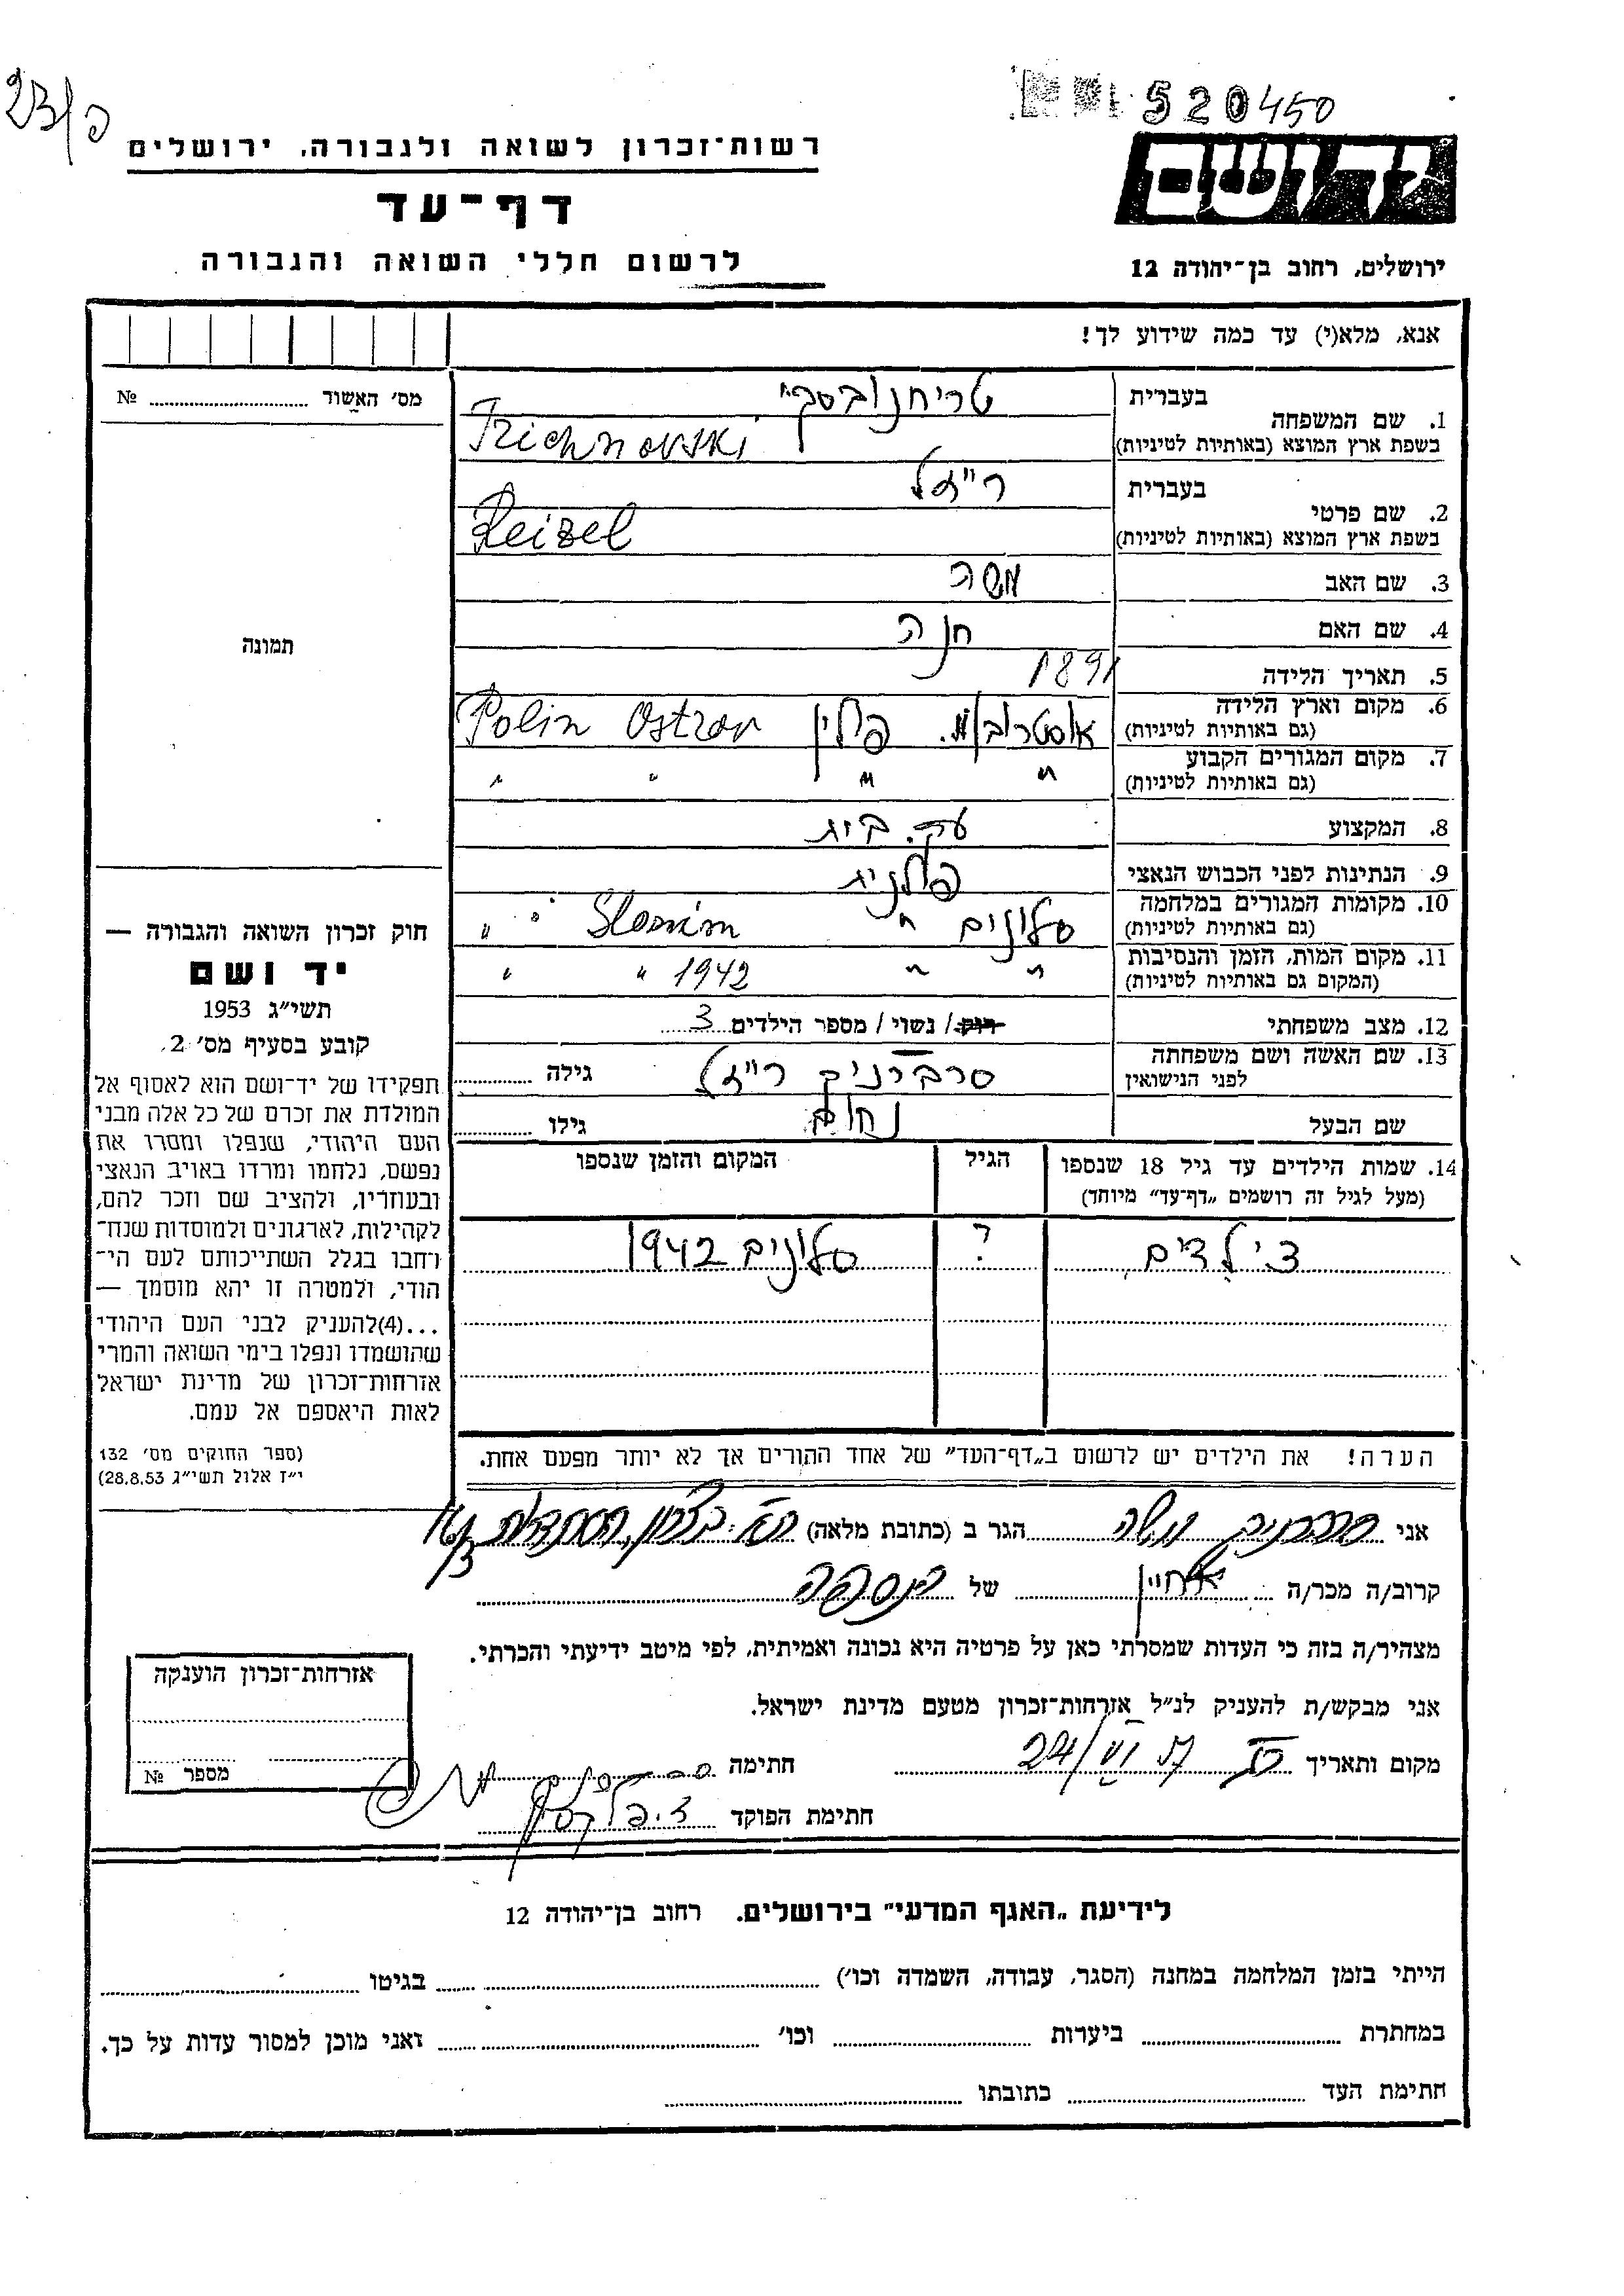 23/פ
520450
רשות־זכרון לשואה ולגבורה, ירושלים
דף־עד
לרשום חללי השואה והגבורה
יד ושם
ירושלים, רחוב בן־יהודה 12
אנא, מלא(י) עד כמה שידוע לך!
מס׳ האשור № 
תמונה
חוק זכרון השואה והגבורה —
יד ושם
תשי״ג 1953
קובע בסעיף מס׳ 2.
תפקידו של יד־ושם הוא לאסוף אל
המולדת את זכרם של כל אלה מבני
העם היהודי, שנפלו ומסרו את
נפשם, נלחמו ומרדו באויב הנאצי
ובעוזריו, ולהציב שם וזכר להם,
לקהילות, לארגונים ולמוסדות שנח־
רחבו בגלל השתייכותם לעם הי־
הודי, ולמטרה זו יהא מוסמך —
...(4)להעניק לבני העם היהודי
שהושמדו ונפלו בימי השואה והמרי
אזרחות־זכרון של מדינת ישראל
לאות היאספם אל עמם.
(ספר החוקים מס׳ 132
י״ז אלול תשי״ג 28.8.53)
בעברית טריחנובסקי
1. שם המשפחה
בשפת ארץ המוצא (באותיות לטיניות) Trichnovski
בעברית רייזל
2. שם פרטי
בשפת ארץ המוצא (באותיות לטיניות) Reizel
3. שם האב משה
4. שם האם חנה
5. תאריך הלידה 1891
6. מקום וארץ הלידה
(גם באותיות לטיניות) אוסטרוב מ. פולין Polin Ostrov
7. מקום המגורים הקבוע
(גם באותיות לטיניות) " " " "
8. המקצוע עק. בית
9. הנתינות לפני הכבוש הנאצי פולנית
10. מקומות המגורים במלחמה
(גם באותיות לטיניות) סלונים " Slonim " "
11. מקום המות, הזמן והנסיבות
(המקום גם באותיות לטיניות) " " 1942 " "
12. מצב משפחתי רוק/ נשוי / מספר הילדים 3
13. שם האשה ושם משפחתה
לפני הנישואין סרברניק רייזל גילה
שם הבעל נחום גילו
14. שמות הילדים עד גיל 18 שנספו הגיל המקום והזמן שנספו
(מעל לגיל זה רושמים „דף־עד״ מיוחד)
3 ילדים ? סלונים 1942
הערה! את הילדים יש לרשום ב„דף־העד״ של אחד ההורים אך לא יותר מפעם אחת.
אני סרברניק משה הגר ב (כתובת מלאה)
קרוב/ה מכר/ה אחיין של הנספה
מצהיר/ה בזה כי העדות שמסרתי כאן על פרטיה היא נכונה ואמיתית, לפי מיטב ידיעתי והכרתי.
אני מבקש/ת להעניק לנ״ל אזרחות־זכרון מטעם מדינת ישראל.
מקום ותאריך 24/VI 57 חתימה
חתימת הפוקד
אזרחות־זכרון הוענקה
מספר №
לידיעת „האגף המדעי״ בירושלים. רחוב בן־יהודה 12
הייתי בזמן המלחמה במחנה (הסגר, עבודה, השמדה וכו׳) בגיטו
במחתרת ביערות וכו׳ ואני מוכן למסור עדות על כך.
חתימת העד כתובתו